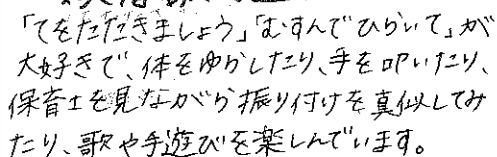 「てをたたきましょう」「むすんでひらいて」が
大好きで、体をゆらしたり、手を叩いたり、
保育士を見ながら振り付けを真似してみ
たり、歌や手遊びを楽しんでいます。